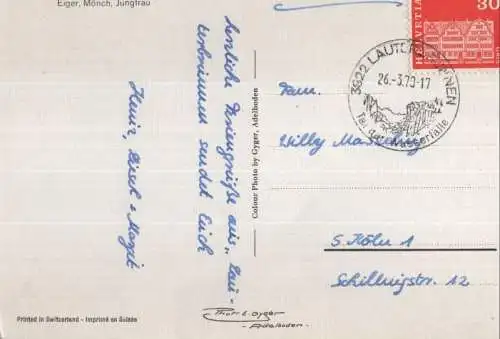 Eiger, Mönch, Jungfrau
Herzliche Feriengrüße aus „Lau-
terbrunnen sendet Euch
Heinz, Lisel + Margit
Colour Photo by Gyger, Adelboden
Printed in Switzerland - Imprimé en Suisse
Phot. E. Gyger
- Adelboden -
HELVETIA
30
3822 LAUTERBRUNNEN
26.-3.79-17
Tal der Wasserfälle
Fam.
Willy
5 Köln 1
Schillingstr. 12